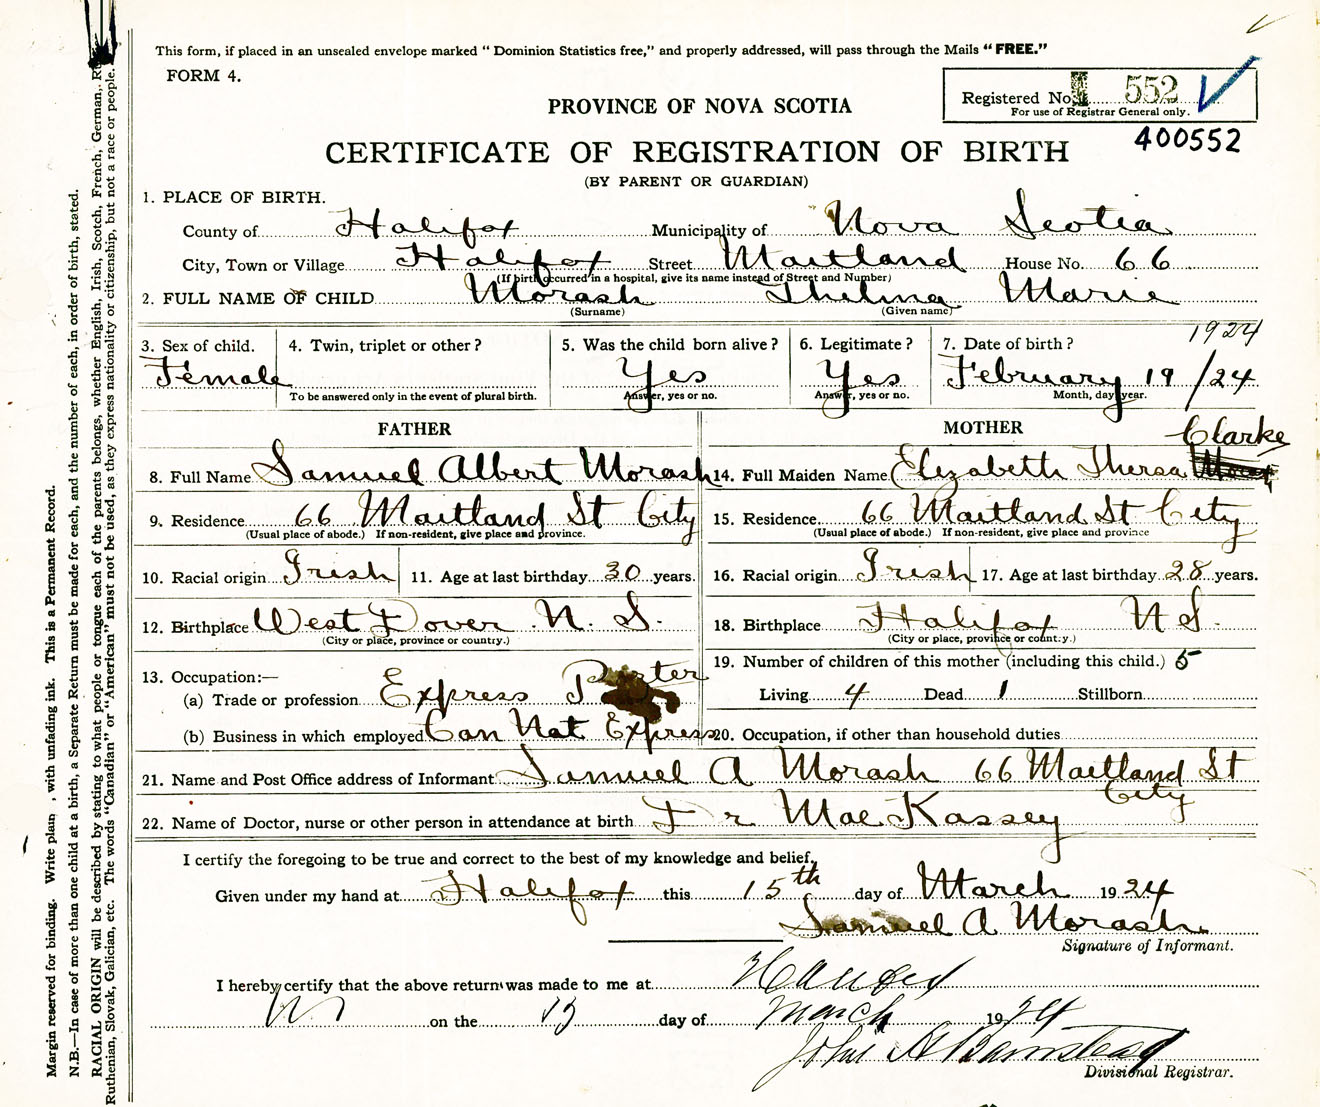 This form, if placed in an unsealed envelope marked “ Dominion Statistics free,” and properly addressed, will pass through the Mails “ FREE.”
FORM 4.
Registered No. 552
For use of Registrar General only.
PROVINCE OF NOVA SCOTIA
400552
CERTIFICATE OF REGISTRATION OF BIRTH
(BY PARENT OR GUARDIAN)
1. PLACE OF BIRTH.
County of Halifax Municipality of Nova Scotia
City, Town or Village Halifax Street Maitland House No. 66
(If birth occurred in a hospital, give its name instead of Street and Number)
2. FULL NAME OF CHILD Morash Thelma Marie
(Surname) (Given name)
3. Sex of child. Female
4. Twin, triplet or other ?
To be answered only in the event of plural birth.
5. Was the child born alive ? Yes
Answer, yes or no.
6. Legitimate ? Yes
Answer, yes or no.
7. Date of birth ? 1924
February 19 /24
Month, day, year.
FATHER
8. Full Name Samuel Albert Morash
9. Residence 66 Maitland St City
(Usual place of abode.) If non-resident, give place and province.
10. Racial origin Irish 11. Age at last birthday 30 years.
12. Birthplace West Dover N. S.
(City or place, province or country.)
13. Occupation:—
(a) Trade or profession Express Porter
(b) Business in which employed Can Nat Express
MOTHER
Clarke
14. Full Maiden Name Elizabeth Thersa
15. Residence 66 Maitland St City
(Usual place of abode.) If non-resident, give place and province
16. Racial origin Irish 17. Age at last birthday 28 years.
18. Birthplace Halifax N S.
(City or place, province or country.)
19. Number of children of this mother (including this child.) 5
Living 4 Dead 1 Stillborn
20. Occupation, if other than household duties
21. Name and Post Office address of Informant Samuel A Morash 66 Maitland St
City
22. Name of Doctor, nurse or other person in attendance at birth Dr Mac Kassey
I certify the foregoing to be true and correct to the best of my knowledge and belief,
Given under my hand at Halifax this 15th day of March 1924
Samuel A Morash
Signature of Informant.
I hereby certify that the above return was made to me at
on the day of March 1924
John
Divisional Registrar.
Margin reserved for binding. Write plain , with unfading ink. This is a Permanent Record.
N.B.—In case of more than one child at a birth, a Separate Return must be made for each, and the number of each, in order of birth, stated.
RACIAL ORIGIN will be described by stating to what people or tongue each of the parents belongs, whether English, Irish, Scotch, French, German,
Ruthenian, Slovak, Galician, etc. The words “Canadian” or “American” must not be used, as they express nationality or citizenship, but not a race or people.